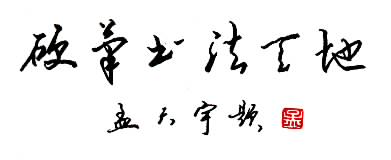 硬笔书法天地
孟天宇题
孟